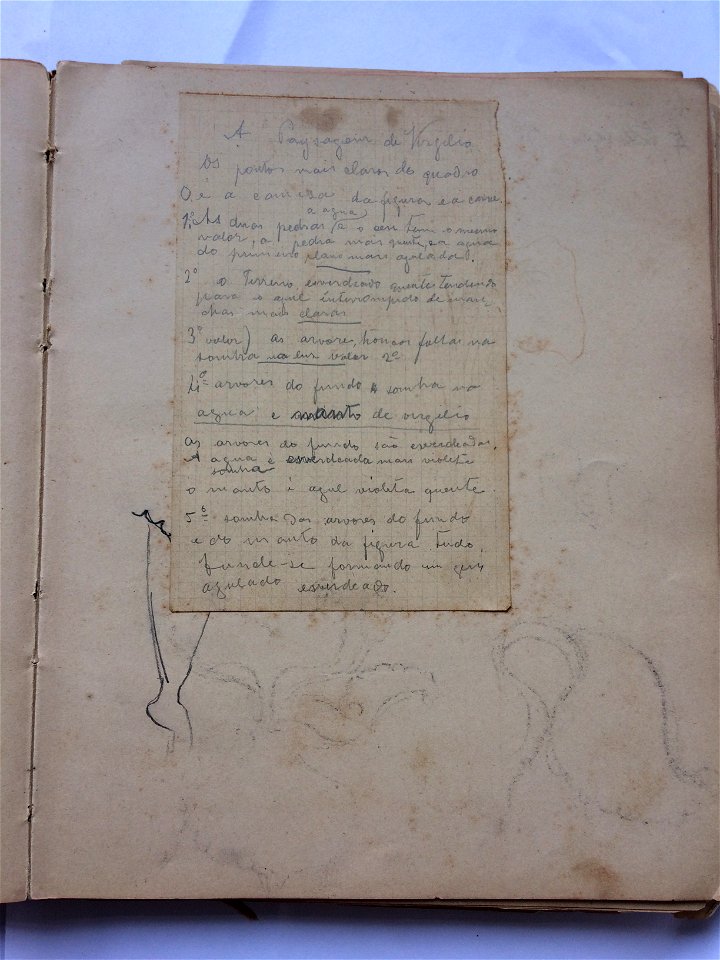 A Paysagem de Virgilio
Os pontos mais claros do quadro
é a camisa da figura e a carne
1º As duas pedras e o ceu tem o mesmo
a agua
valor, a pedra mais quente, e a agua
do primeiro plano mais azulada.
2º o Terreno, esverdeado quente tendendo
para o azul interrompido de man-
chas mais claras
3º valor) as arvore, troncos folhas na
sombra valor 2º
4º arvores do fundo a sombra na
agua e manto de virgilio
as arvores do fundo são esverdeadas.
A agua é esverdeada mais violeta
sombra
o manto é azul violeta quente.
5º sombra das arvores do fundo
e do manto da figura. tudo,
funde-se formando um gris
azulado esverdeado.